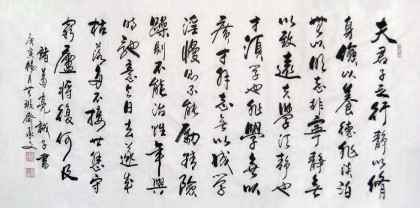 夫君子之行靜以脩
身儉以養德非淡泊
無以明志非寧靜無
以致遠夫學須靜也
才須學也非學無以
廣才非志無以成學
淫慢則不能勵精險
躁則不能治性年與
時馳意與日去遂成
枯落多不接世悲守
窮廬將復何及
諸葛亮誡子書
庚寅陽月